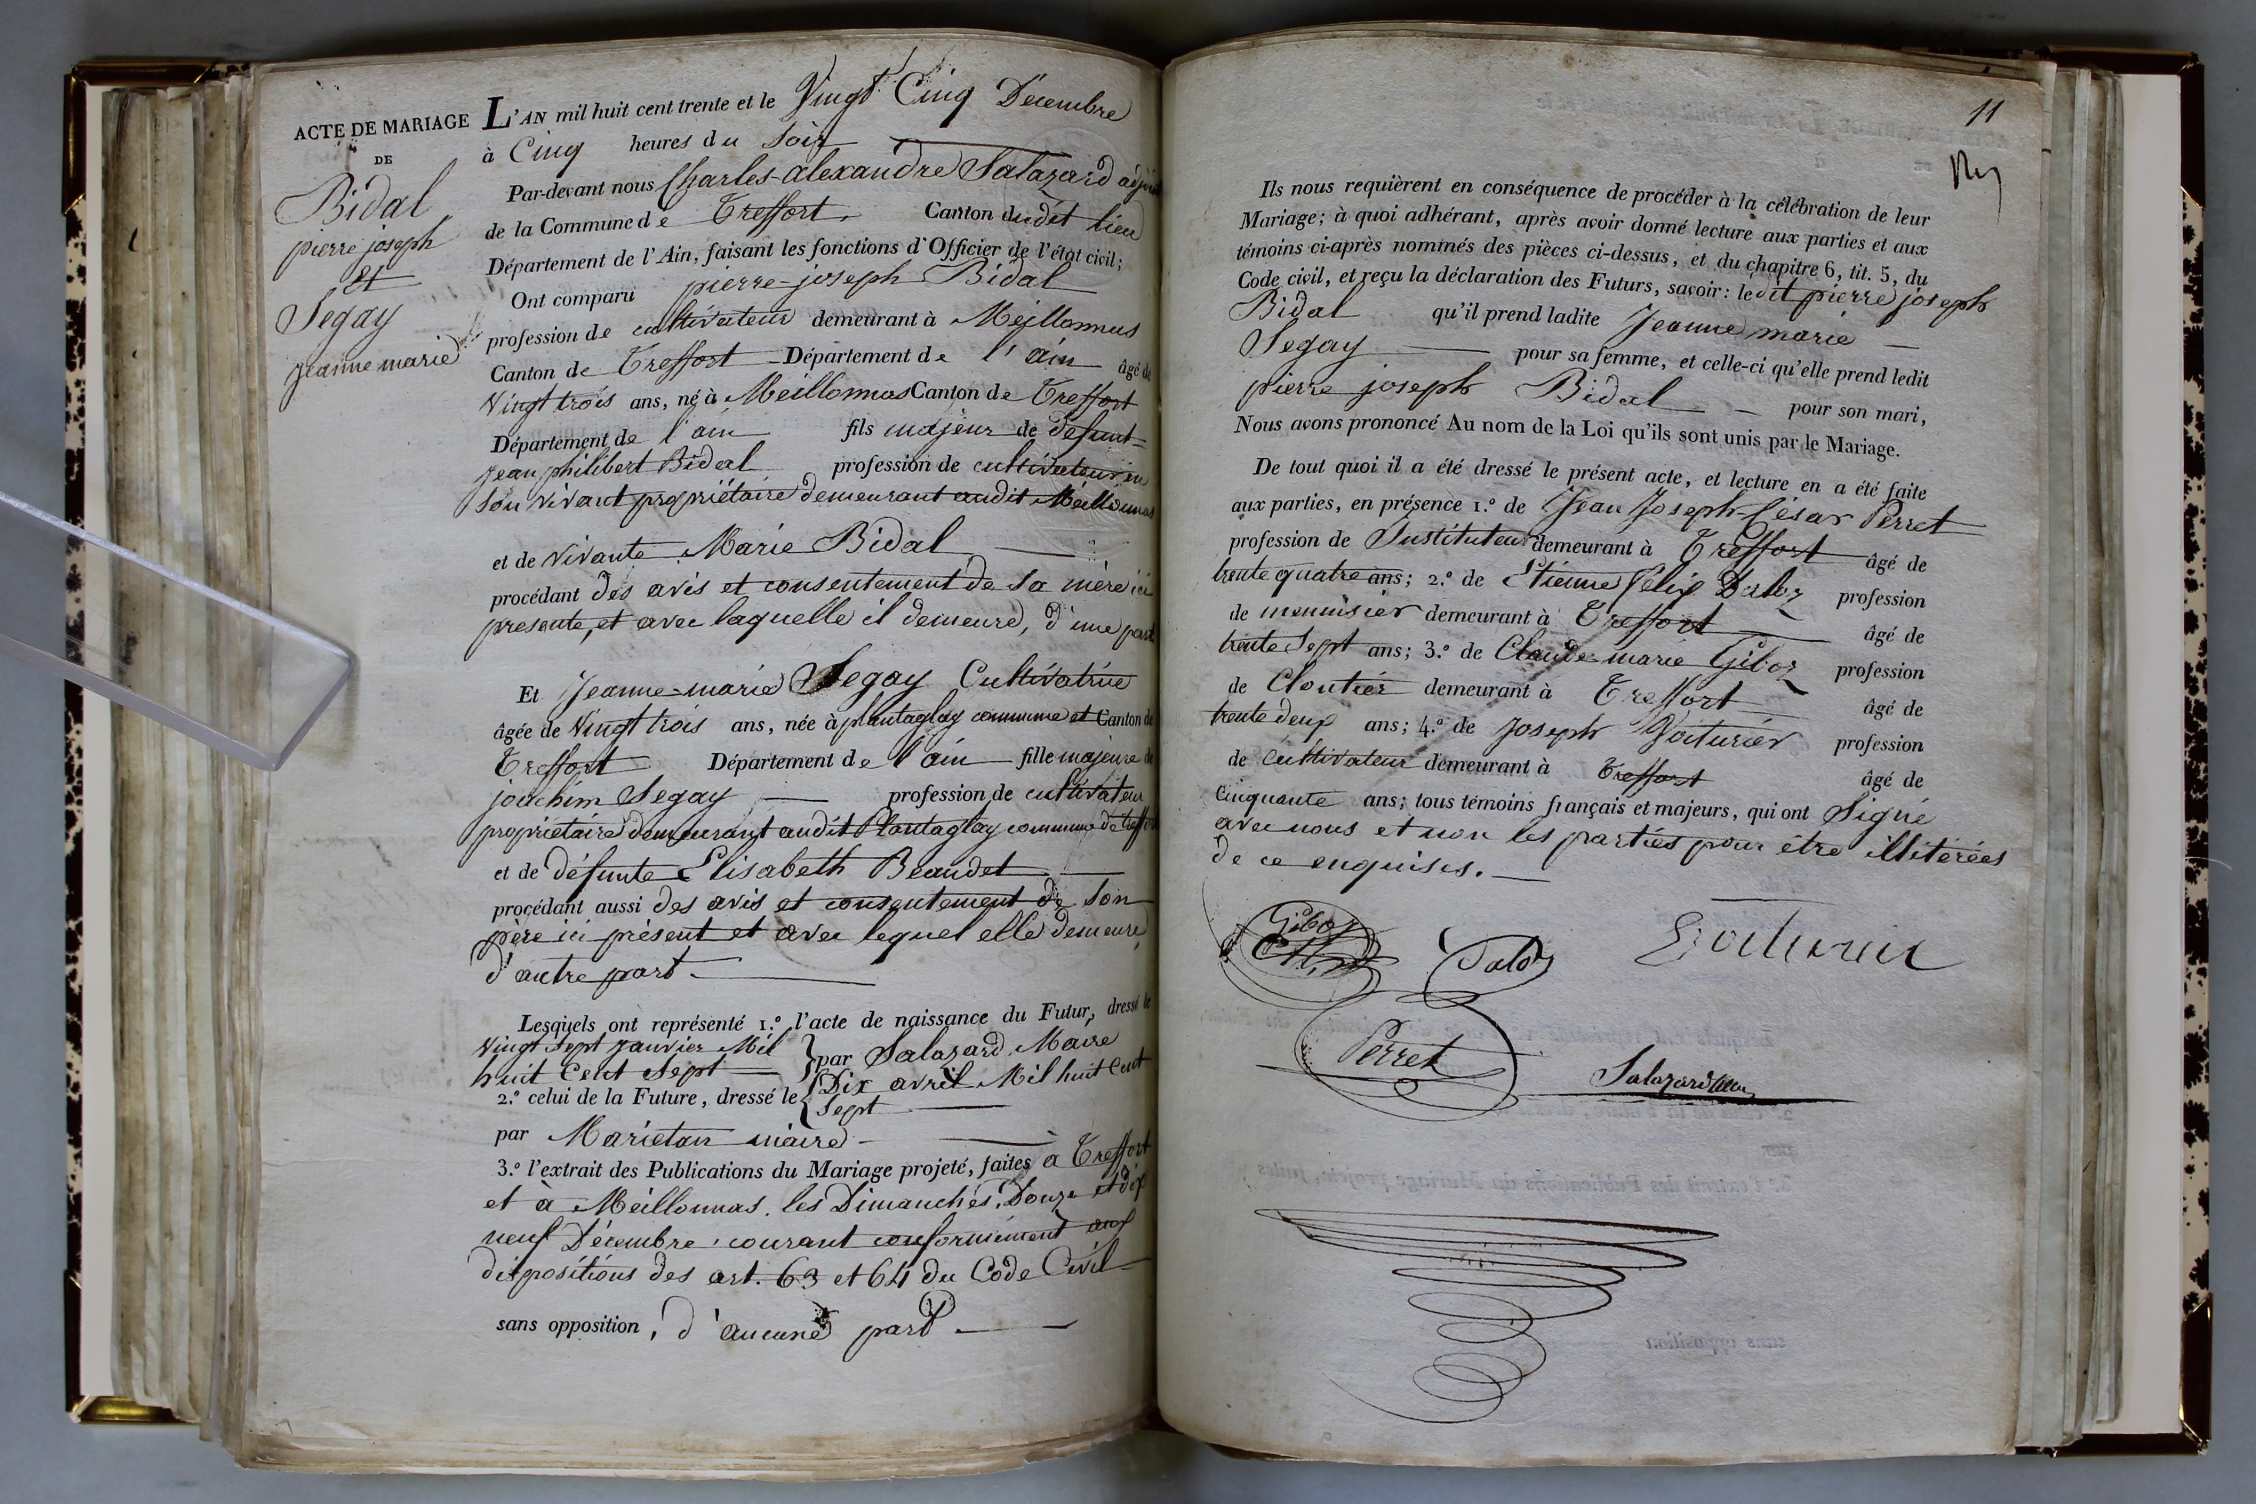 ACTE DE MARIAGE
DE
Bidal
pierre joseph
et
Segay
jeanne marie
L'AN mil huit cent trente et le Vingt Cinq Décembre
à Cinq heures du Soir
Par-devant nous Charles-alexandre Salazard adjoint
de la Commune de Treffort, Canton dudit lieu
Département de l'Ain, faisant les fonctions d'Officier de l'état civil;
Ont comparu pierre-joseph Bidal
profession de cultivateur demeurant à Meillonnas
Canton de Treffort Département de l'ain âgé de
Vingt trois ans, né à Meillonnas Canton de Treffort
Département de l'ain fils majeur de défunt
Jean philibert Bidal profession de cultivateur en
son vivant propriétaire demeurant audit Meillonnas
et de vivante Marie Bidal
procédant des avis et consentement de sa mère ici
presente, et avec laquelle il demeure, d'une part
Et Jeanne-marie Segay Cultivatrice
âgée de Vingt trois ans, née à plantaglay commune et Canton de
Treffort Département de l'ain fille majeure de
joachim Segay profession de cultivateur
propriétaire demeurant audit Plantaglay commune de treffort
et de défunte Elisabeth Beaudet
procédant aussi des avis et consentement de son
père ici présent et avec lequel elle demeure,
d'autre part.
Lesquels ont représenté 1.º l'acte de naissance du Futur, dressé le
Vingt sept janvier Mil
huit Cent Sept par Salazard Maire
2.º celui de la Future, dressé le Dix avril Mil huit Cent
Sept
par Marietan maire
3.º l'extrait des Publications du Mariage projeté, faites à Treffort
et à Meillonnas. les Dimanches, Douze et dix
neuf Décembre, courant conformément aux
dispositions des art. 63 et 64 du Code Civil
sans opposition, d'aucune part.
11
Ils nous requièrent en conséquence de procéder à la célébration de leur
Mariage; à quoi adhérant, après avoir donné lecture aux parties et aux
témoins ci-après nommés des pièces ci-dessus, et du chapitre 6, tit. 5, du
Code civil, et reçu la déclaration des Futurs, savoir: ledit pierre joseph
Bidal qu'il prend ladite Jeanne marie
Segay pour sa femme, et celle-ci qu'elle prend ledit
pierre joseph Bidal pour son mari,
Nous avons prononcé Au nom de la Loi qu'ils sont unis par le Mariage.
De tout quoi il a été dressé le présent acte, et lecture en a été faite
aux parties, en présence 1.º de Jean Joseph-César Perret
profession de Instituteur demeurant à Treffort âgé de
trente quatre ans; 2.º de Etienne Félix Daloz profession
de menuisier demeurant à Treffort âgé de
trente Sept ans; 3.º de Claude-marie Giboz profession
de Cloutier demeurant à Treffort âgé de
trente deux ans; 4.º de Joseph Voiturier profession
de Cultivateur demeurant à treffort âgé de
Cinquante ans; tous témoins français et majeurs, qui ont Signé
avec nous et non les parties pour être illitérées
de ce enquises.
Giboz
Daloz
Voiturier
Perret
Salazard